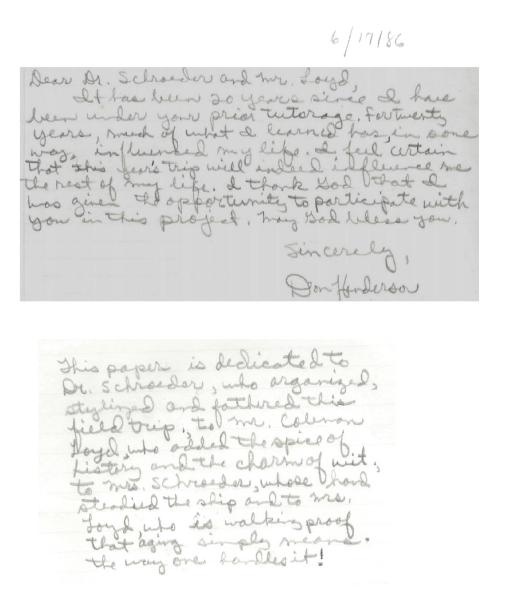 6/17/86
Dear Dr. Schroeder and Mr. Loyd,
It has been 20 years since I have
been under your prior tutorage. For twenty
years, much of what I learned has, in some
way, influenced my life. I feel certain
that this year's trip will indeed influence me
the rest of my life. I thank God that I
was given the opportunity to participate with
you in this project. May God bless you.
Sincerely,
Don Henderson
This paper is dedicated to
Dr. Schroeder, who organized,
stylized and fathered this
field trip, to Mr. Coleman
Loyd, who added the spice of
history and the charm of wit,
to Mrs. Schroeder, whose hand
steadied the ship and to Mrs.
Loyd, who is walking proof
that aging simply means
the way one handles it!